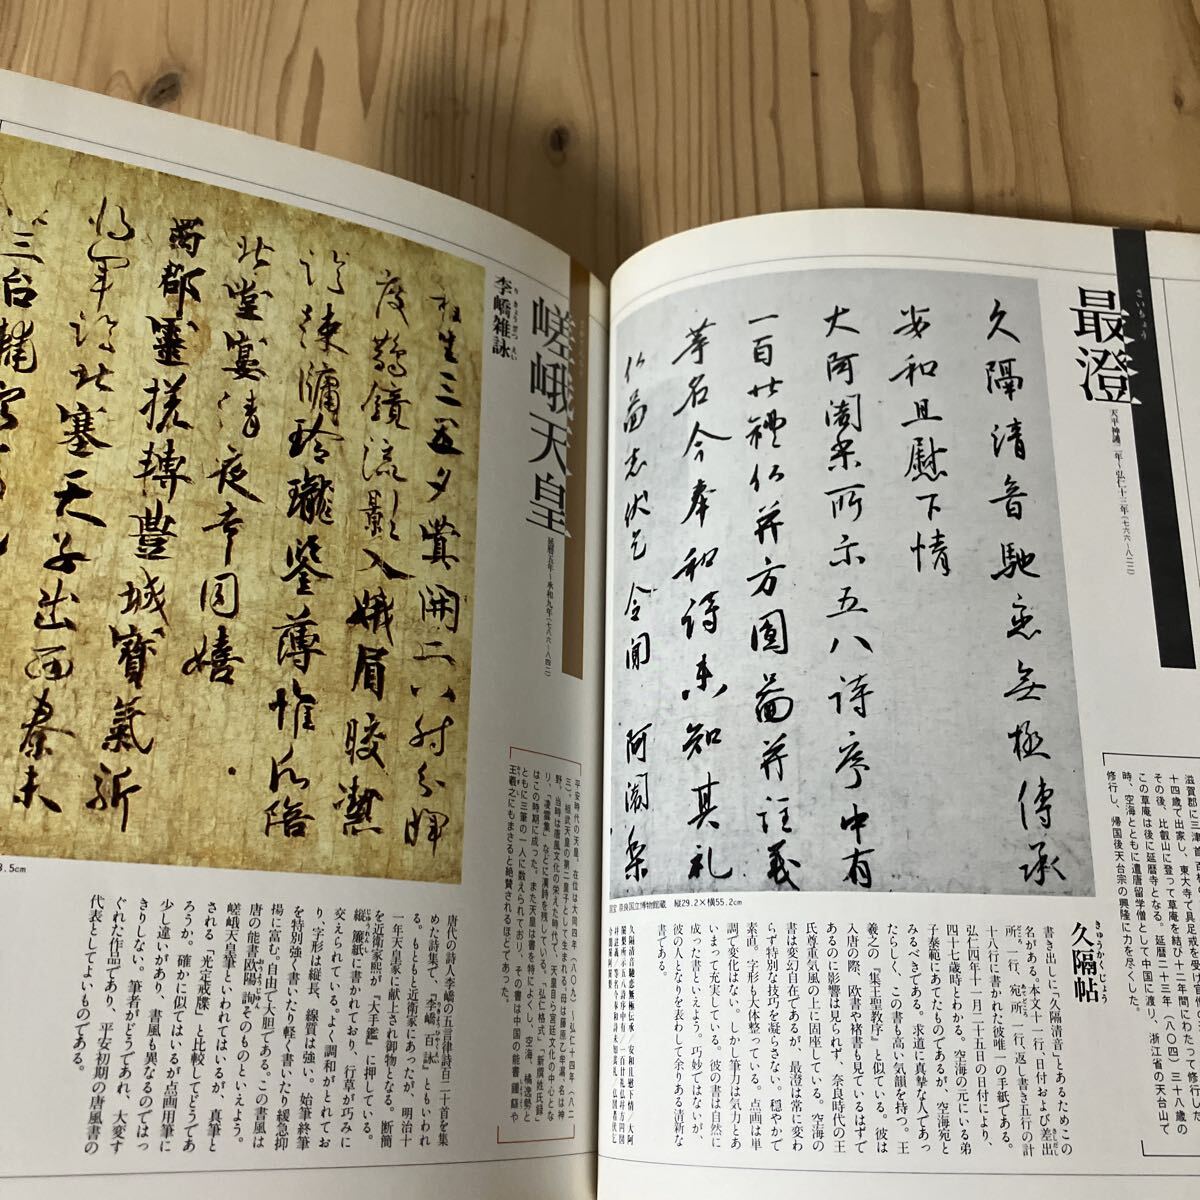 さいちょう
最澄
天平神護二年〜弘仁十三年(七六六〜八二二)
久隔清音馳恋無極傳承
安和且慰下情
大阿闍梨所示五八詩序中有
一百廿禮仏并方圓畵并註義
等名今奉和詩未知其礼
仏畵志伏乞令聞 阿闍梨
奈良国立博物館蔵 縦29.2×横55.2cm
十四歳で出家し、東大寺で具足戒を受け官僧の
その後、比叡山に登って草庵を結び十二年間にわたって修行し
この草庵は後に延暦寺となる。延暦二十三年(八〇四)三十八歳の
時、空海とともに遣唐留学僧として中国に渡り、浙江省の天台山で
修行し、帰国後天台宗の興隆に力を尽くした。
きゅうかくじょう
久隔帖
書き出しに「久隔清音」とあるためこの
名がある。本文十一行、日付および差出
所一行、宛所一行、返し書き五行の計
十八行に書かれた彼唯一の手紙である。
弘仁四年十一月二十五日の日付により、
四十七歳時とわかる。空海の元にいる弟
子泰範にあてたものであるが、空海宛と
みるべきである。求道に真摯な人であっ
たらしく、この書も高い気韻を持つ。王
羲之の『集王聖教序』と似ている。彼は
入唐の際、欧書や褚書も見ているはずで
あるのに影響は見られず、奈良時代の王
氏尊重気風の上に固座している。空海の
書は変幻自在であるが、最澄は常に変わ
らず特別な技巧を凝らさない。穏やかで
素直。字形も大体整っている。点画は単
調で変化はない。しかし筆力は気力とあ
いまって充実している。彼の書は自然に
成った書といえよう。巧妙ではないが、
彼の人となりを表わして余りある清新な
書である。
嵯峨天皇
延暦五年〜承和九年(七八六〜八四二)
りきょうざつえい
李嶠雑詠
桂生三五夕蓂開二八時分輝
度鵲鏡流影入娥眉皎潔
臨疎牖玲瓏鑒薄帷願陪
北堂宴清夜幸同嬉
蜀郡靈槎轉豊城寳氣新
将軍臨北塞天子出西秦未
三台輔
3.5cm
平安時代の天皇。在位は大同四年(八〇九)〜弘仁十四年(八二
三)。桓武天皇の第二皇子として生まれる。母は藤原乙牟漏、名は神
野。当時は唐風文化の栄えた時代で、天皇自ら宮廷文化の中心とな
り、『凌雲集』などに漢詩を残している。『弘仁格式』、『新撰姓氏録』
はこの時期に成った。また天皇は書を特によくし、空海、橘逸勢と
ともに三筆の一人に数えられており、その書は中国の能書鍾繇や
王羲之にもまさると絶賛されるほどであった。
唐代の詩人李嶠の五言律詩百二十首を集
めた詩集で『李嶠百詠』ともいわれ
る。もともと近衛家にあったが、明治十
一年天皇家に献上され御物となる。断簡
を近衛家熙が『大手鑑』に押している。
縦簾紙に書かれており、行草が巧みに
交えられている。よく調和がとれてお
り、字形は縦長、線質は強い。始筆終筆
を特別強く書いたり軽く書いたり緩急抑
揚に富む。自由で大胆である。この書風は
唐の能書欧陽詢そのものといえよう。
嵯峨天皇筆といわれてはいるが、真筆と
される『光定戒牒』と比較してどうであ
ろうか。確かに似てはいるが点画用筆に
少し違いがあり、書風も異なるのではっ
きりしない。筆者がどうであれ、大変す
ぐれた作品であり、平安初期の唐風書の
代表としてよいものである。